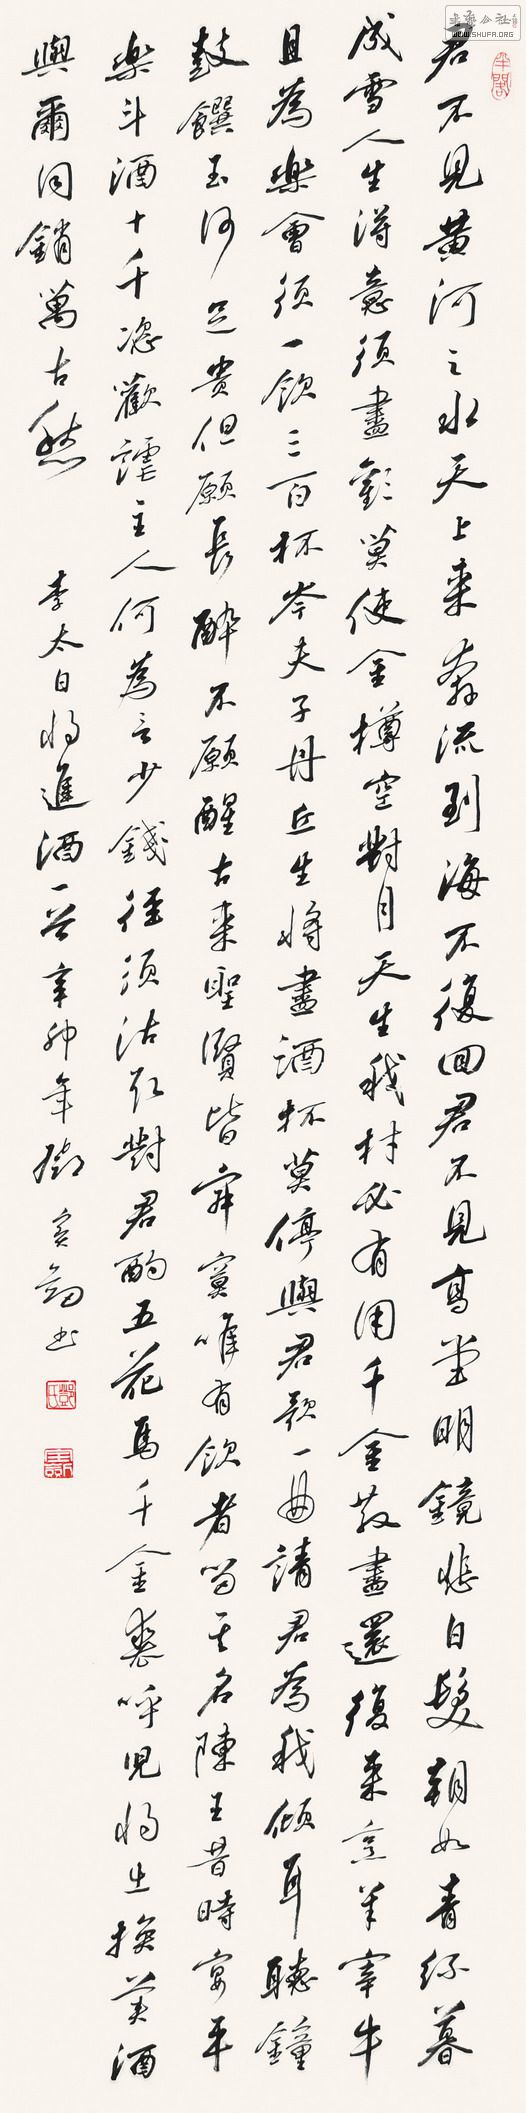 君不見黃河之水天上來奔流到海不復回君不見高堂明鏡悲白髮朝如青絲暮
成雪人生得意須盡歡莫使金樽空對月天生我材必有用千金散盡還復來烹羊宰牛
且為樂會須一飲三百杯岑夫子丹丘生將盡酒杯莫停與君歌一曲請君為我傾耳聽鐘
鼓饌玉何足貴但願長醉不願醒古來聖賢皆寂寞唯有飲者留其名陳王昔時宴平
樂斗酒十千恣歡謔主人何為言少錢徑須沽取對君酌五花馬千金裘呼兒將出換美酒
與爾同銷萬古愁
李太白將進酒一首辛卯年鄧寶劍書
鄧氏
WWW.SHUFA.ORG